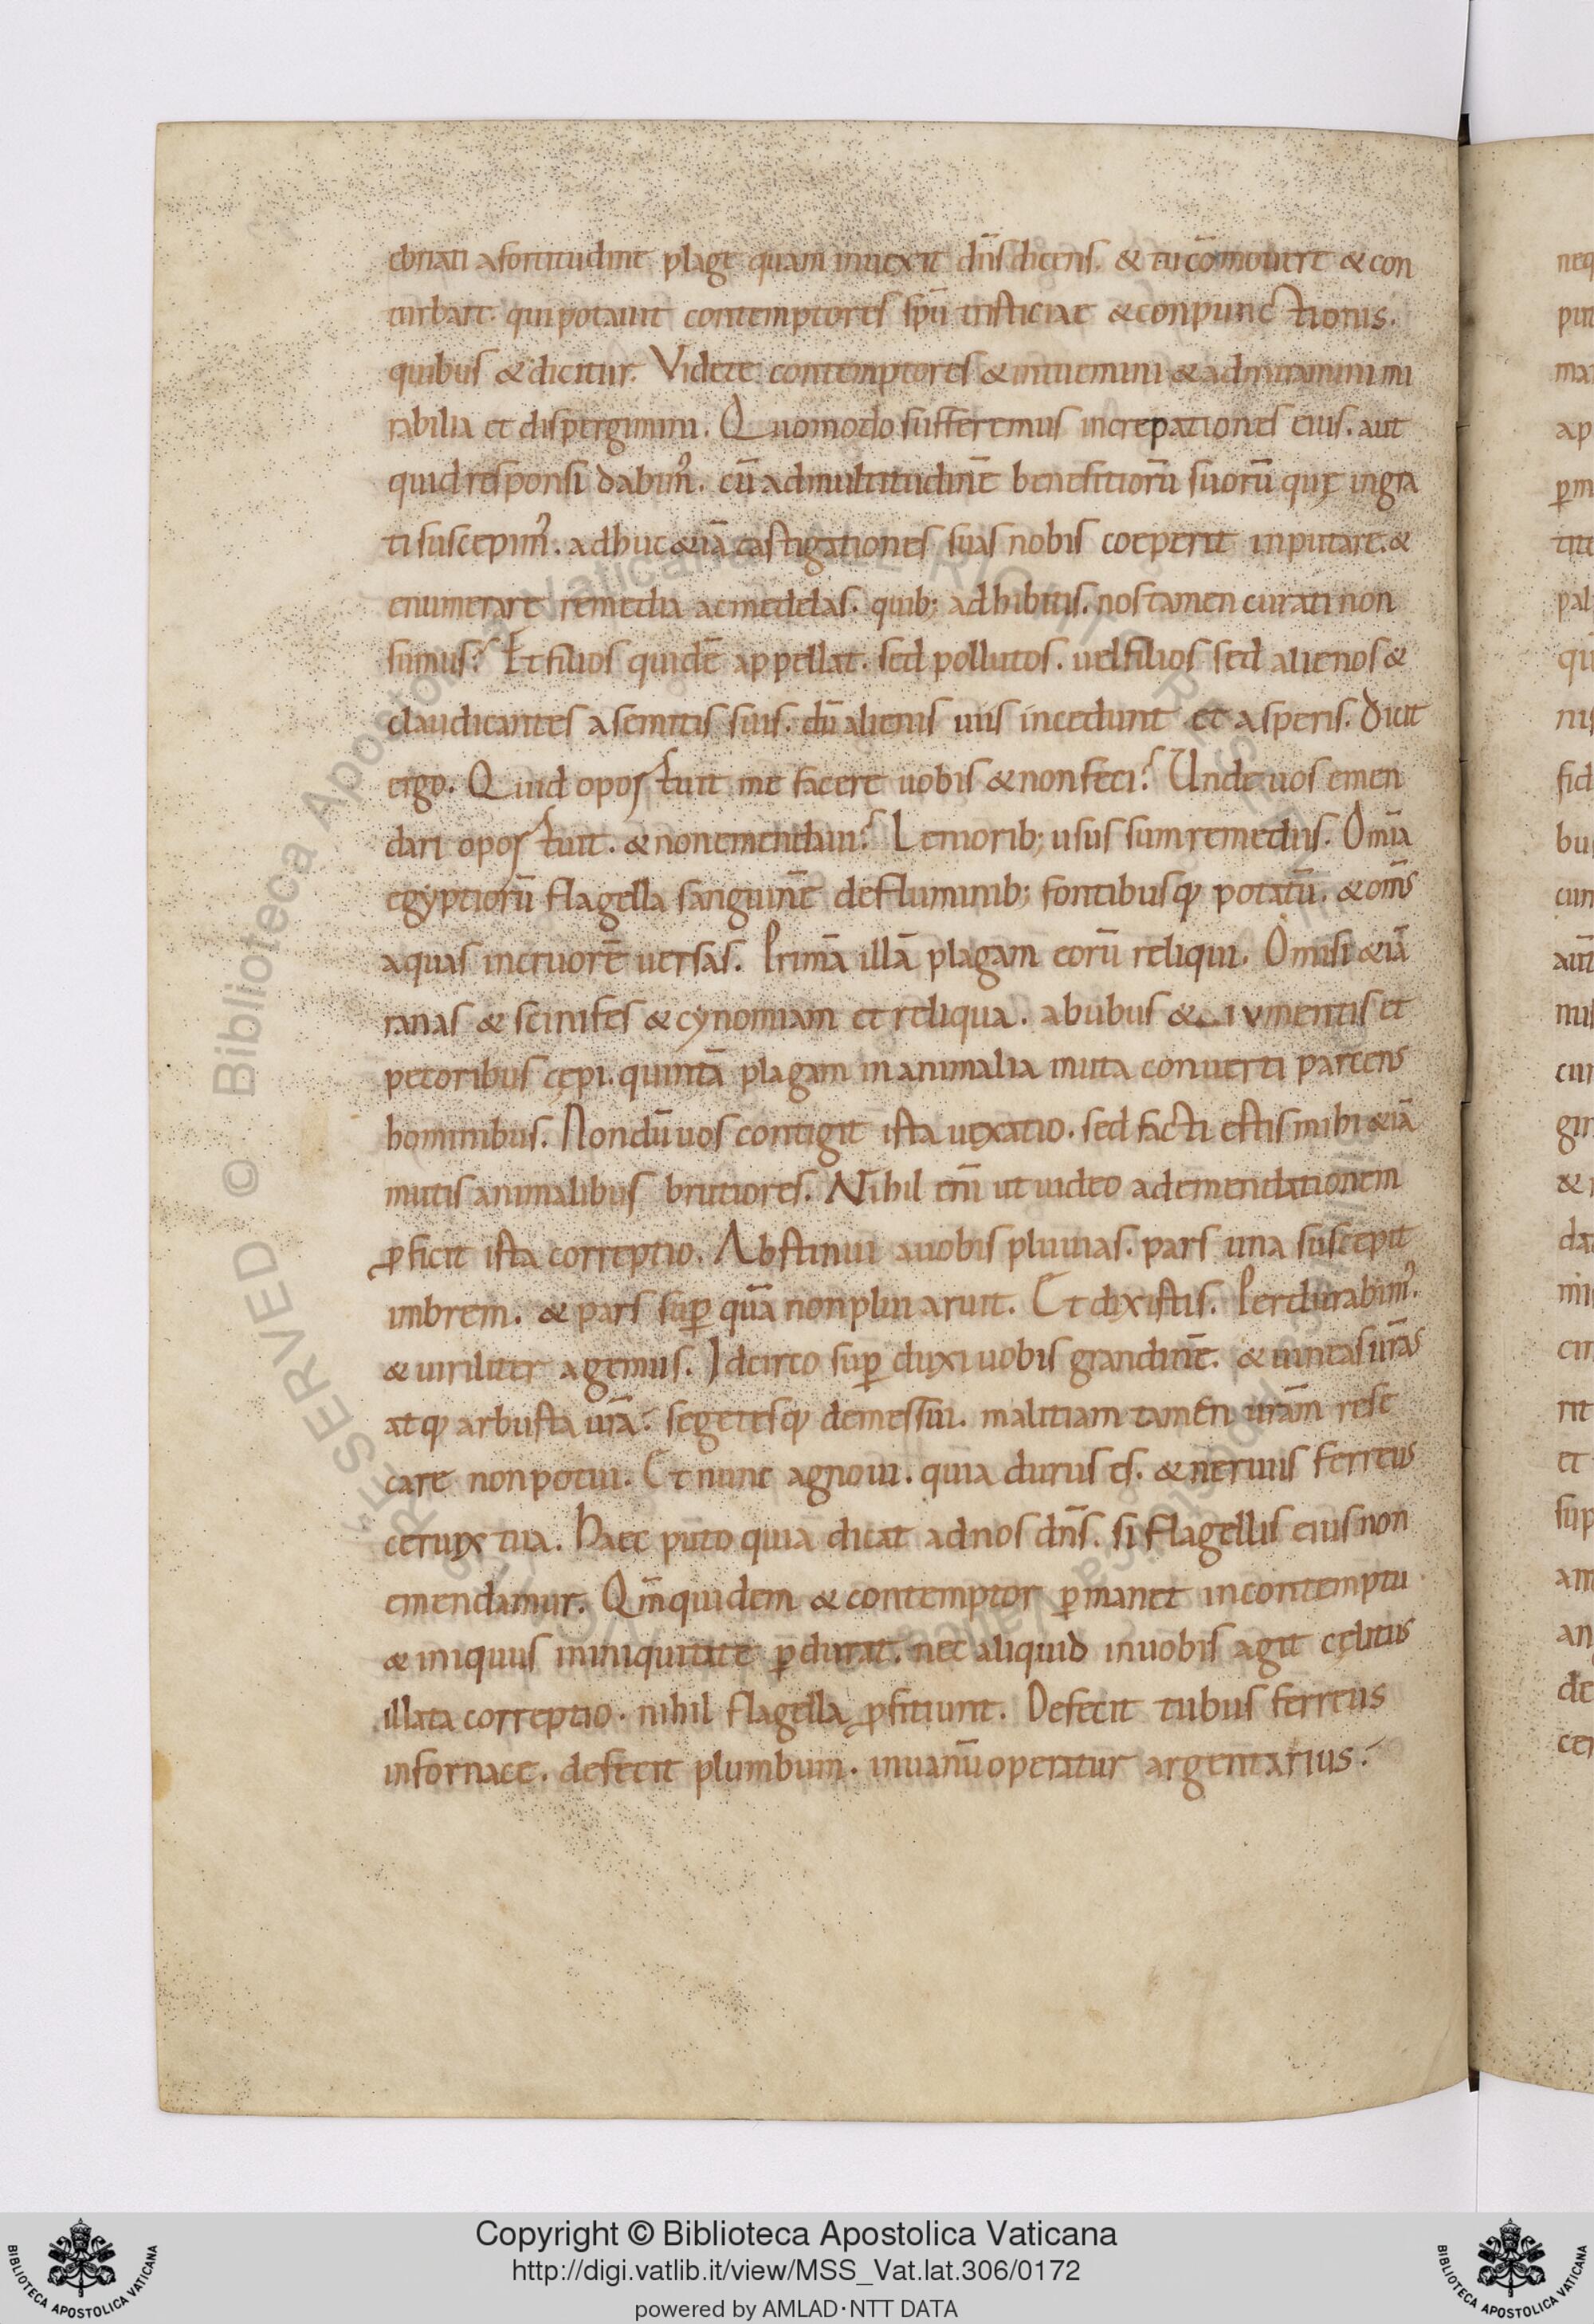 ebriati a fortitudine plage quam inuexit dn̄s dicens. & tu cōmouere & con
turbare. qui potauit contemptores spū tristiciae & conpunctionis.
quibus & dicitur. Videte contemptores & intuemini & admiramini mi
rabilia et dispergimini. Quomodo sufferemus increpationes eius. aut
quid responsi dabim᾿. cū ad multitudinē benefitiorū suorū quę ingra
ti suscepim᾿. adhuc &iā castigationes suas nobis coeperit inputare. &
enumerare remedia ac medelas. quib; adhibitis. nos tamen curati non
sumus? Et filios quidē appellat. sed pollutos. uel filios sed alienos &
claudicantes a semitis suis. dū alienis uiis incedunt et asperis. Dicit
ergo. Quid oportuit me facere uobis & non feci? Unde uos emen
dari oportuit. & non emendaui? Leniorib; usus sum remediis. Omīa
egyptiorū flagella sanguinē de fluminib; fontibusq; potatū. & om̄s
aquas in cruorē uersas. Primā illā plagam eorū reliqui. Omisi &iā
ranas & scinifes & cynomiam et reliqua. a bubus & iumentis et
pecoribus cępi. quintā plagam in animalia muta conuerti parcens
hominibus. Nondū uos contigit ista uexatio. sed facti estis mihi &iā
mutis animalibus brutiores. Nihil enī ut uideo ad emendationem
ꝓficit ista correptio. Abstinui a uobis pluuias. pars una suscepit
imbrem. & pars sup̄ quā non plui aruit. Et dixistis. Perdurabim᾿.
& uiriliter agemus. Idcirco sup̄ duxi uobis grandinē. & uineas ur̄as
atq; arbusta ur̄a. segetesq; demessui. malitiam tamen ur̄am rese
care non potui. Et nunc agnoui. quia durus es. & neruus ferreus
ceruix tua. Haec puto quia dicat ad nos dn̄s. si flagellis eius non
emendamur. Qm̄ quidem & contemptor ꝑmanet in contemptu
& iniquus in iniquitate ꝑdurat. nec aliquid in uobis agit cęlitus
illata correptio. nihil flagella ꝓfitiunt. Defecit tubus ferreus
in fornace. defecit plumbum. in uanū operatur argentarius.
RESERVED © Biblioteca Apostolica Vaticana
Copyright © Biblioteca Apostolica Vaticana
http://digi.vatlib.it/view/MSS_Vat.lat.306/0172
powered by AMLAD·NTT DATA
BIBLIOTECA APOSTOLICA VATICANA
BIBLIOTECA APOSTOLICA VATICANA